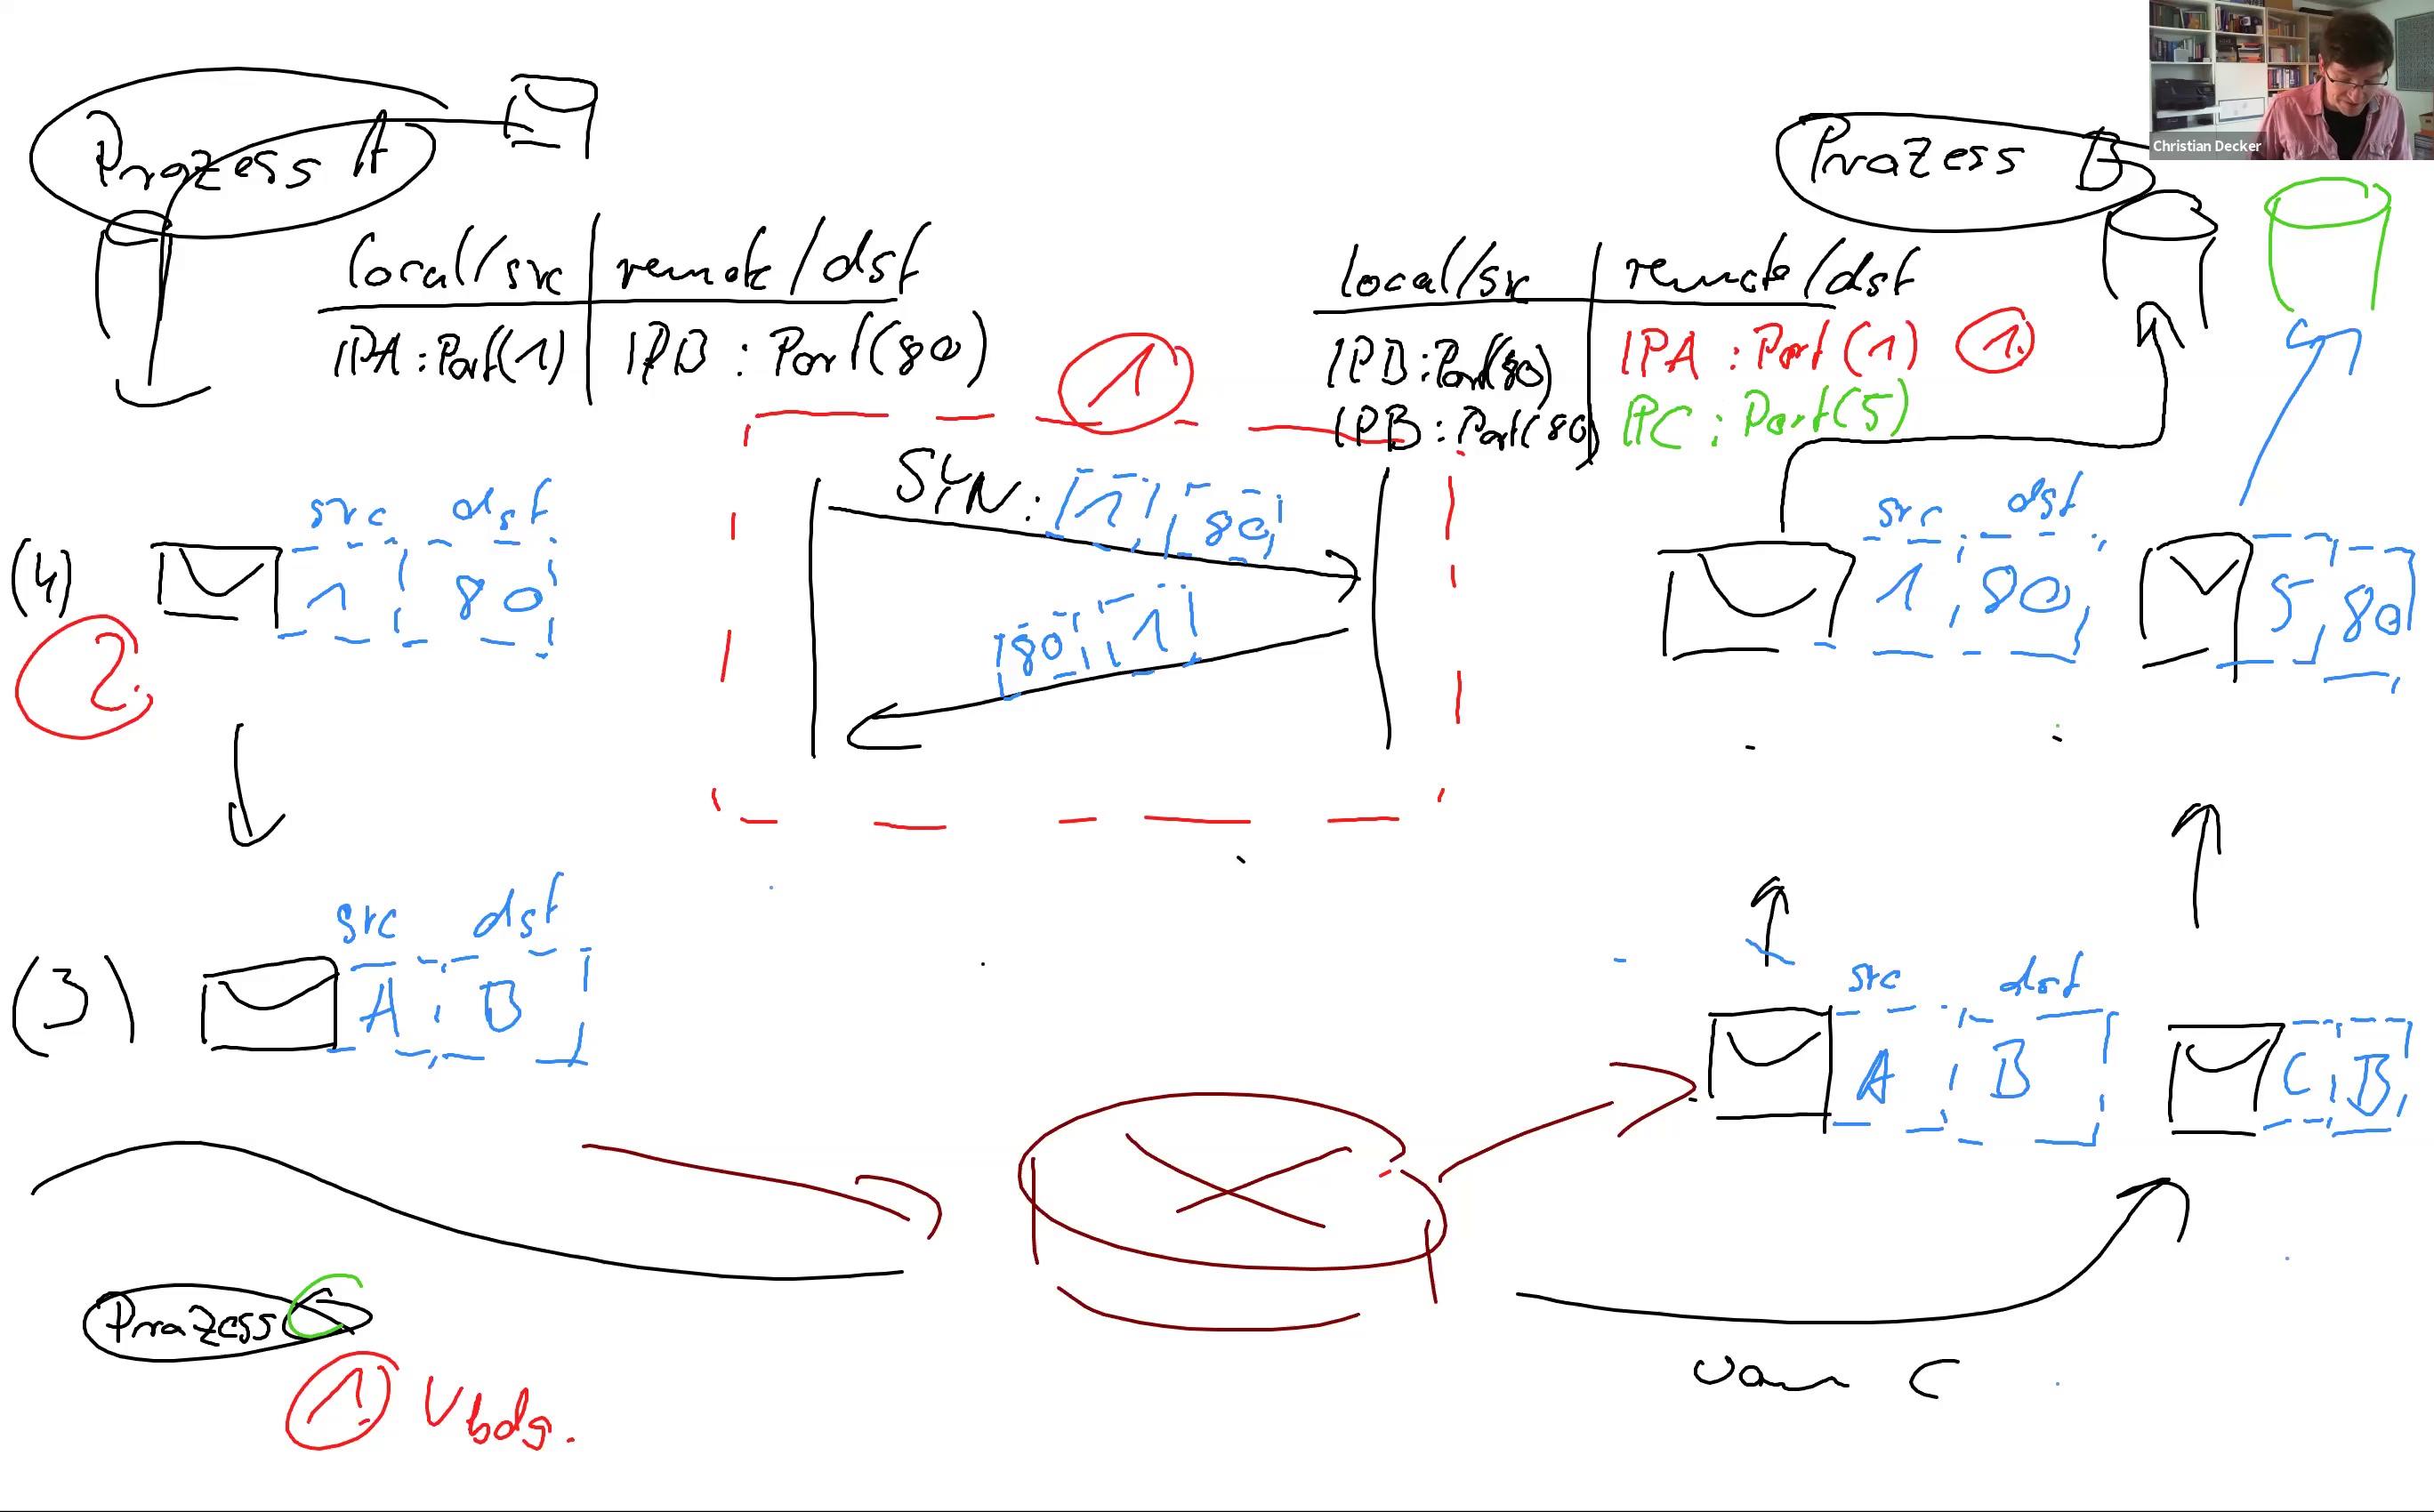 Christian Decker
Prozess A
Prozess B
local/src remote/dst
IPA:Port(1) IPB : Port(80)
local/src remote/dst
IPB:Port(80) IPA : Port(1) 1.
IPB : Port(80) IPC : Port(5)
1
SYN: 1 80
80 1
(4)
src dst
1 80
2.
src dst
1 80
5 80
(3)
src dst
A B
src dst
A B
C B
Prozess C
1. Vbdg.
von C